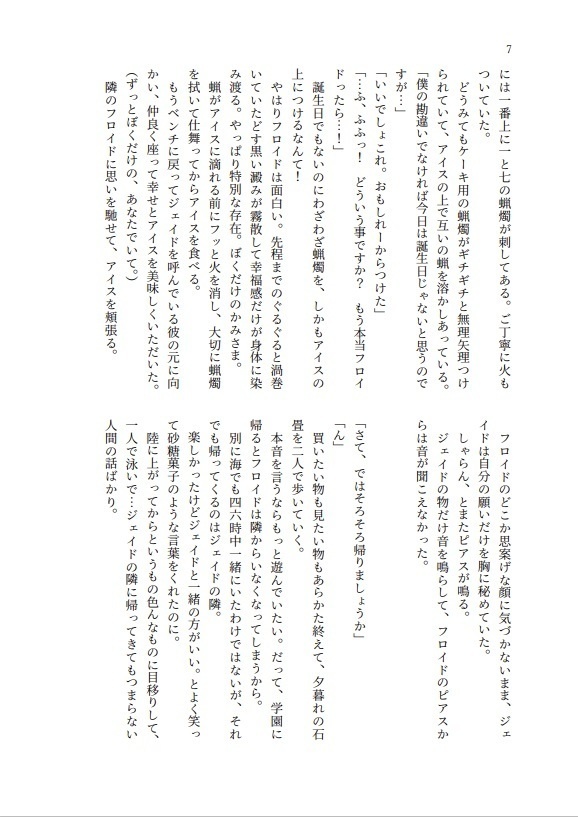 7
には一番上に一と七の蝋燭が刺してある。ご丁寧に火も
ついていた。
　どうみてもケーキ用の蝋燭がギチギチと無理矢理つけ
られていて、アイスの上で互いの蝋を溶かしあっている。
「僕の勘違いでなければ今日は誕生日じゃないと思うので
すが…」
「いいでしょこれ。おもしれーからつけた」
「…ふ、ふふっ！　どういう事ですか？　もう本当フロイ
ドったら…！」
　誕生日でもないのにわざわざ蝋燭を、しかもアイスの
上につけるなんて！
　やはりフロイドは面白い。先程までのぐるぐると渦巻
いていたどす黒い澱みが霧散して幸福感だけが身体に染
み渡る。やっぱり特別な存在。ぼくだけのかみさま。
　蝋がアイスに滴れる前にフッと火を消し、大切に蝋燭
を拭いて仕舞ってからアイスを食べる。
　もうベンチに戻ってジェイドを呼んでいる彼の元に向
かい、仲良く座って幸せとアイスを美味しくいただいた。
（ずっとぼくだけの、あなたでいて。）
　隣のフロイドに思いを馳せて、アイスを頬張る。
　フロイドのどこか思案げな顔に気づかないまま、ジェ
イドは自分の願いだけを胸に秘めていた。
　しゃらん、とまたピアスが鳴る。
　ジェイドの物だけ音を鳴らして、フロイドのピアスか
らは音が聞こえなかった。
「さて、ではそろそろ帰りましょうか」
「ん」
　買いたい物も見たい物もあらかた終えて、夕暮れの石
畳を二人で歩いていく。
　本音を言うならもっと遊んでいたい。だって、学園に
帰るとフロイドは隣からいなくなってしまうから。
　別に海でも四六時中一緒にいたわけではないが、それ
でも帰ってくるのはジェイドの隣。
　楽しかったけどジェイドと一緒の方がいい。とよく笑っ
て砂糖菓子のような言葉をくれたのに。
　陸に上がってからというもの色んなものに目移りして、
一人で泳いで…ジェイドの隣に帰ってきてもつまらない
人間の話ばかり。